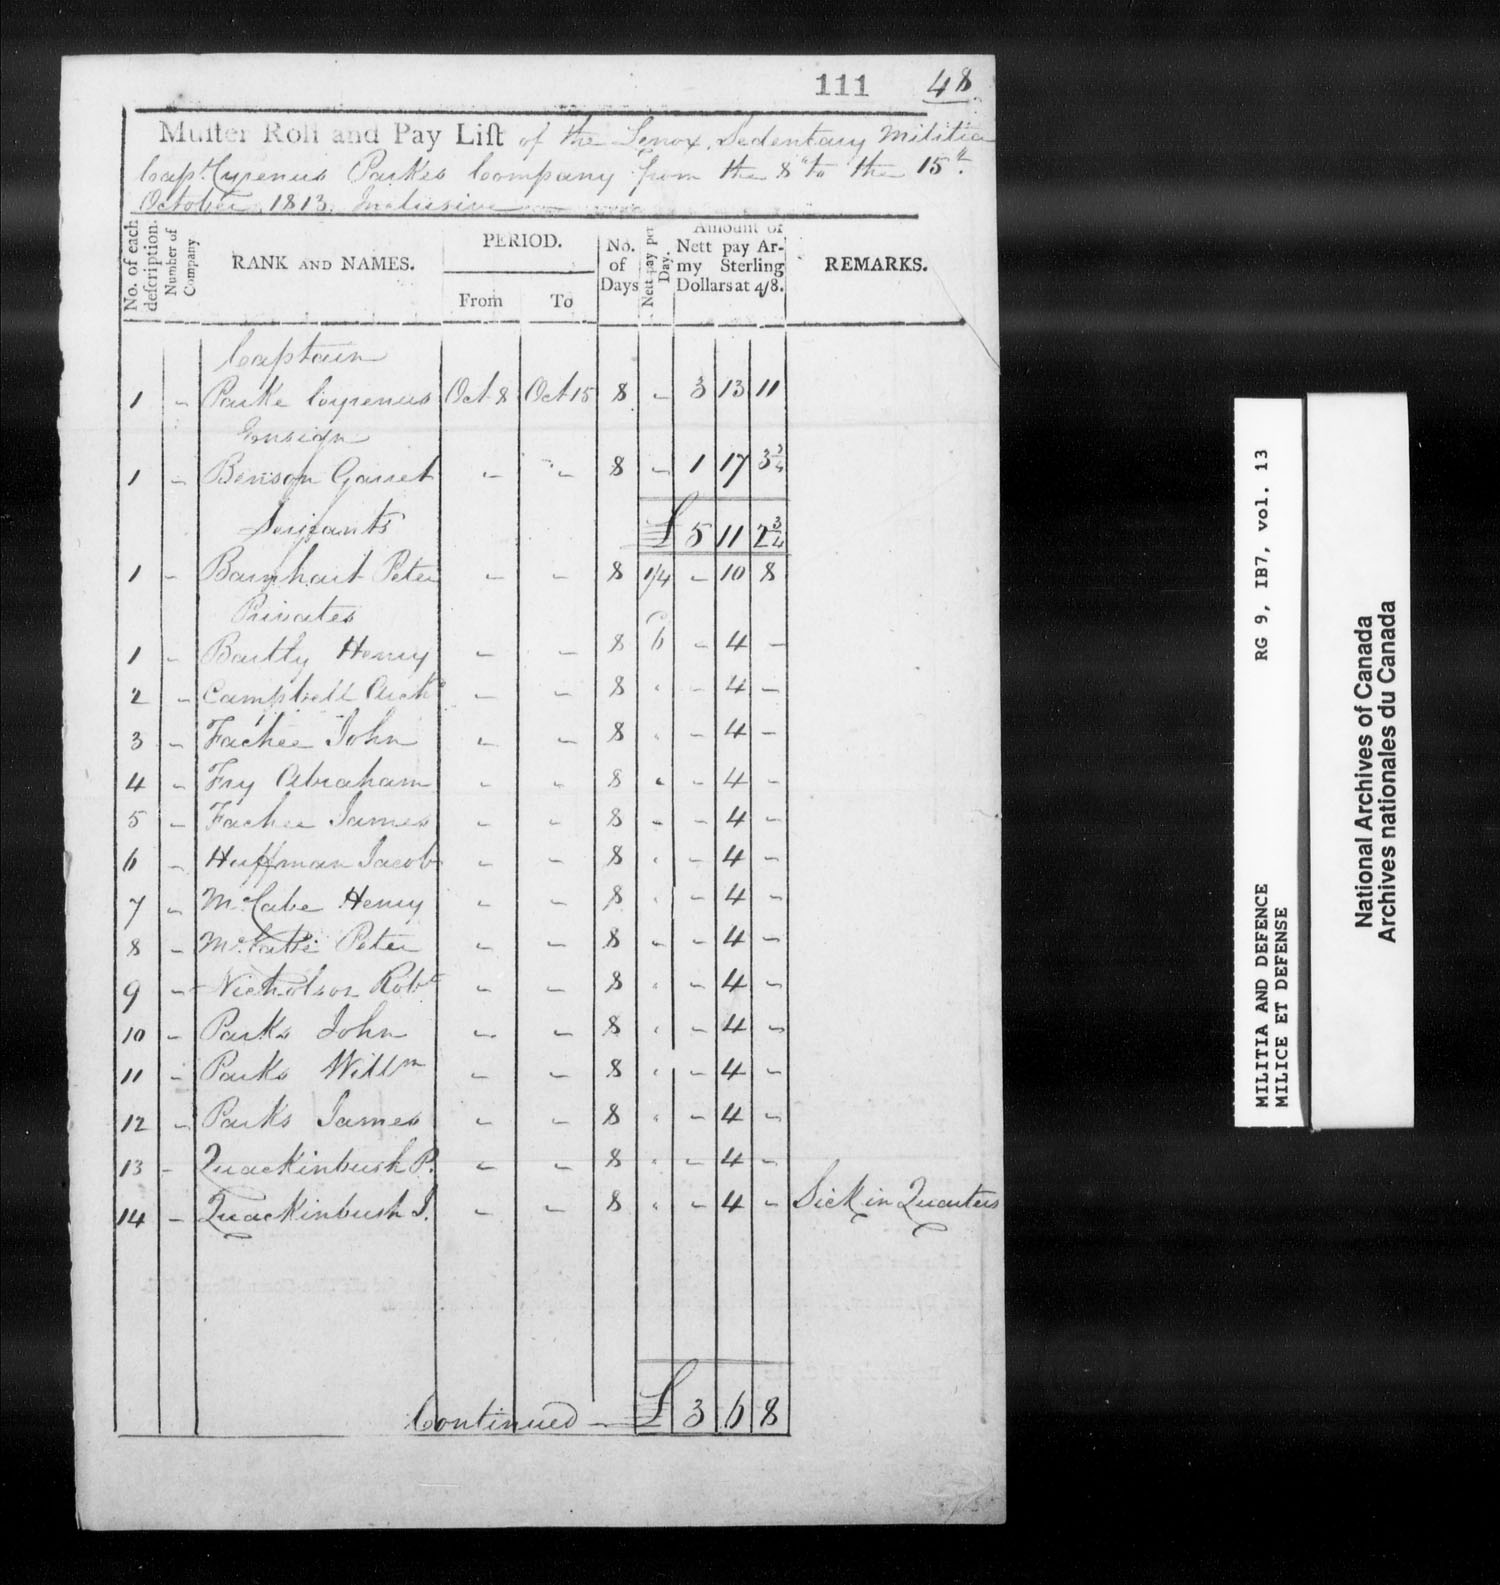 111 48
Muster Roll and Pay List of the Lenox Sedentary Militia
Capt. Cyrenus Parkes Company from the 8th to the 15th
October 1813 Inclusive
No. of each description.
Number of Company
RANK AND NAMES.
PERIOD.
From To
No. of Days
Nett pay per Day.
Amount of Nett pay Army Sterling Dollars at 4/8.
REMARKS.
Captain
1 - Parke Cyrenus Oct 8 Oct 15 8 - 3 13 11
Ensign
1 - Benson Garret - - 8 - 1 17 3 3/4
£ 5 11 2 3/4
Serjeants
1 - Barnhart Peter - - 8 1/4 - 10 8
Privates
1 - Bartly Henry - - 8 6 - 4 -
2 - Campbell Archd - - 8 " - 4 -
3 - Fachee John - - 8 " - 4 -
4 - Fry Abraham - - 8 " - 4 -
5 - Fachee James - - 8 - - 4 -
6 - Huffman Jacob - - 8 " - 4 -
7 - McCabe Henry - - 8 " - 4 -
8 - Peter - - 8 - - 4 -
9 - Nicholson Robt - - 8 " - 4 -
10 - Parks John - - 8 " - 4 -
11 - Parks Willm - - 8 " - 4 -
12 - Parks James - - 8 " - 4 -
13 - Quackinbush P. - - 8 " - 4 -
14 - Quackinbush J. - - 8 " - 4 - Sick in Quarters
Continued - £ 3 6 8
MILITIA AND DEFENCE RG 9, IB7, vol. 13
MILICE ET DEFENSE
National Archives of Canada
Archives nationales du Canada